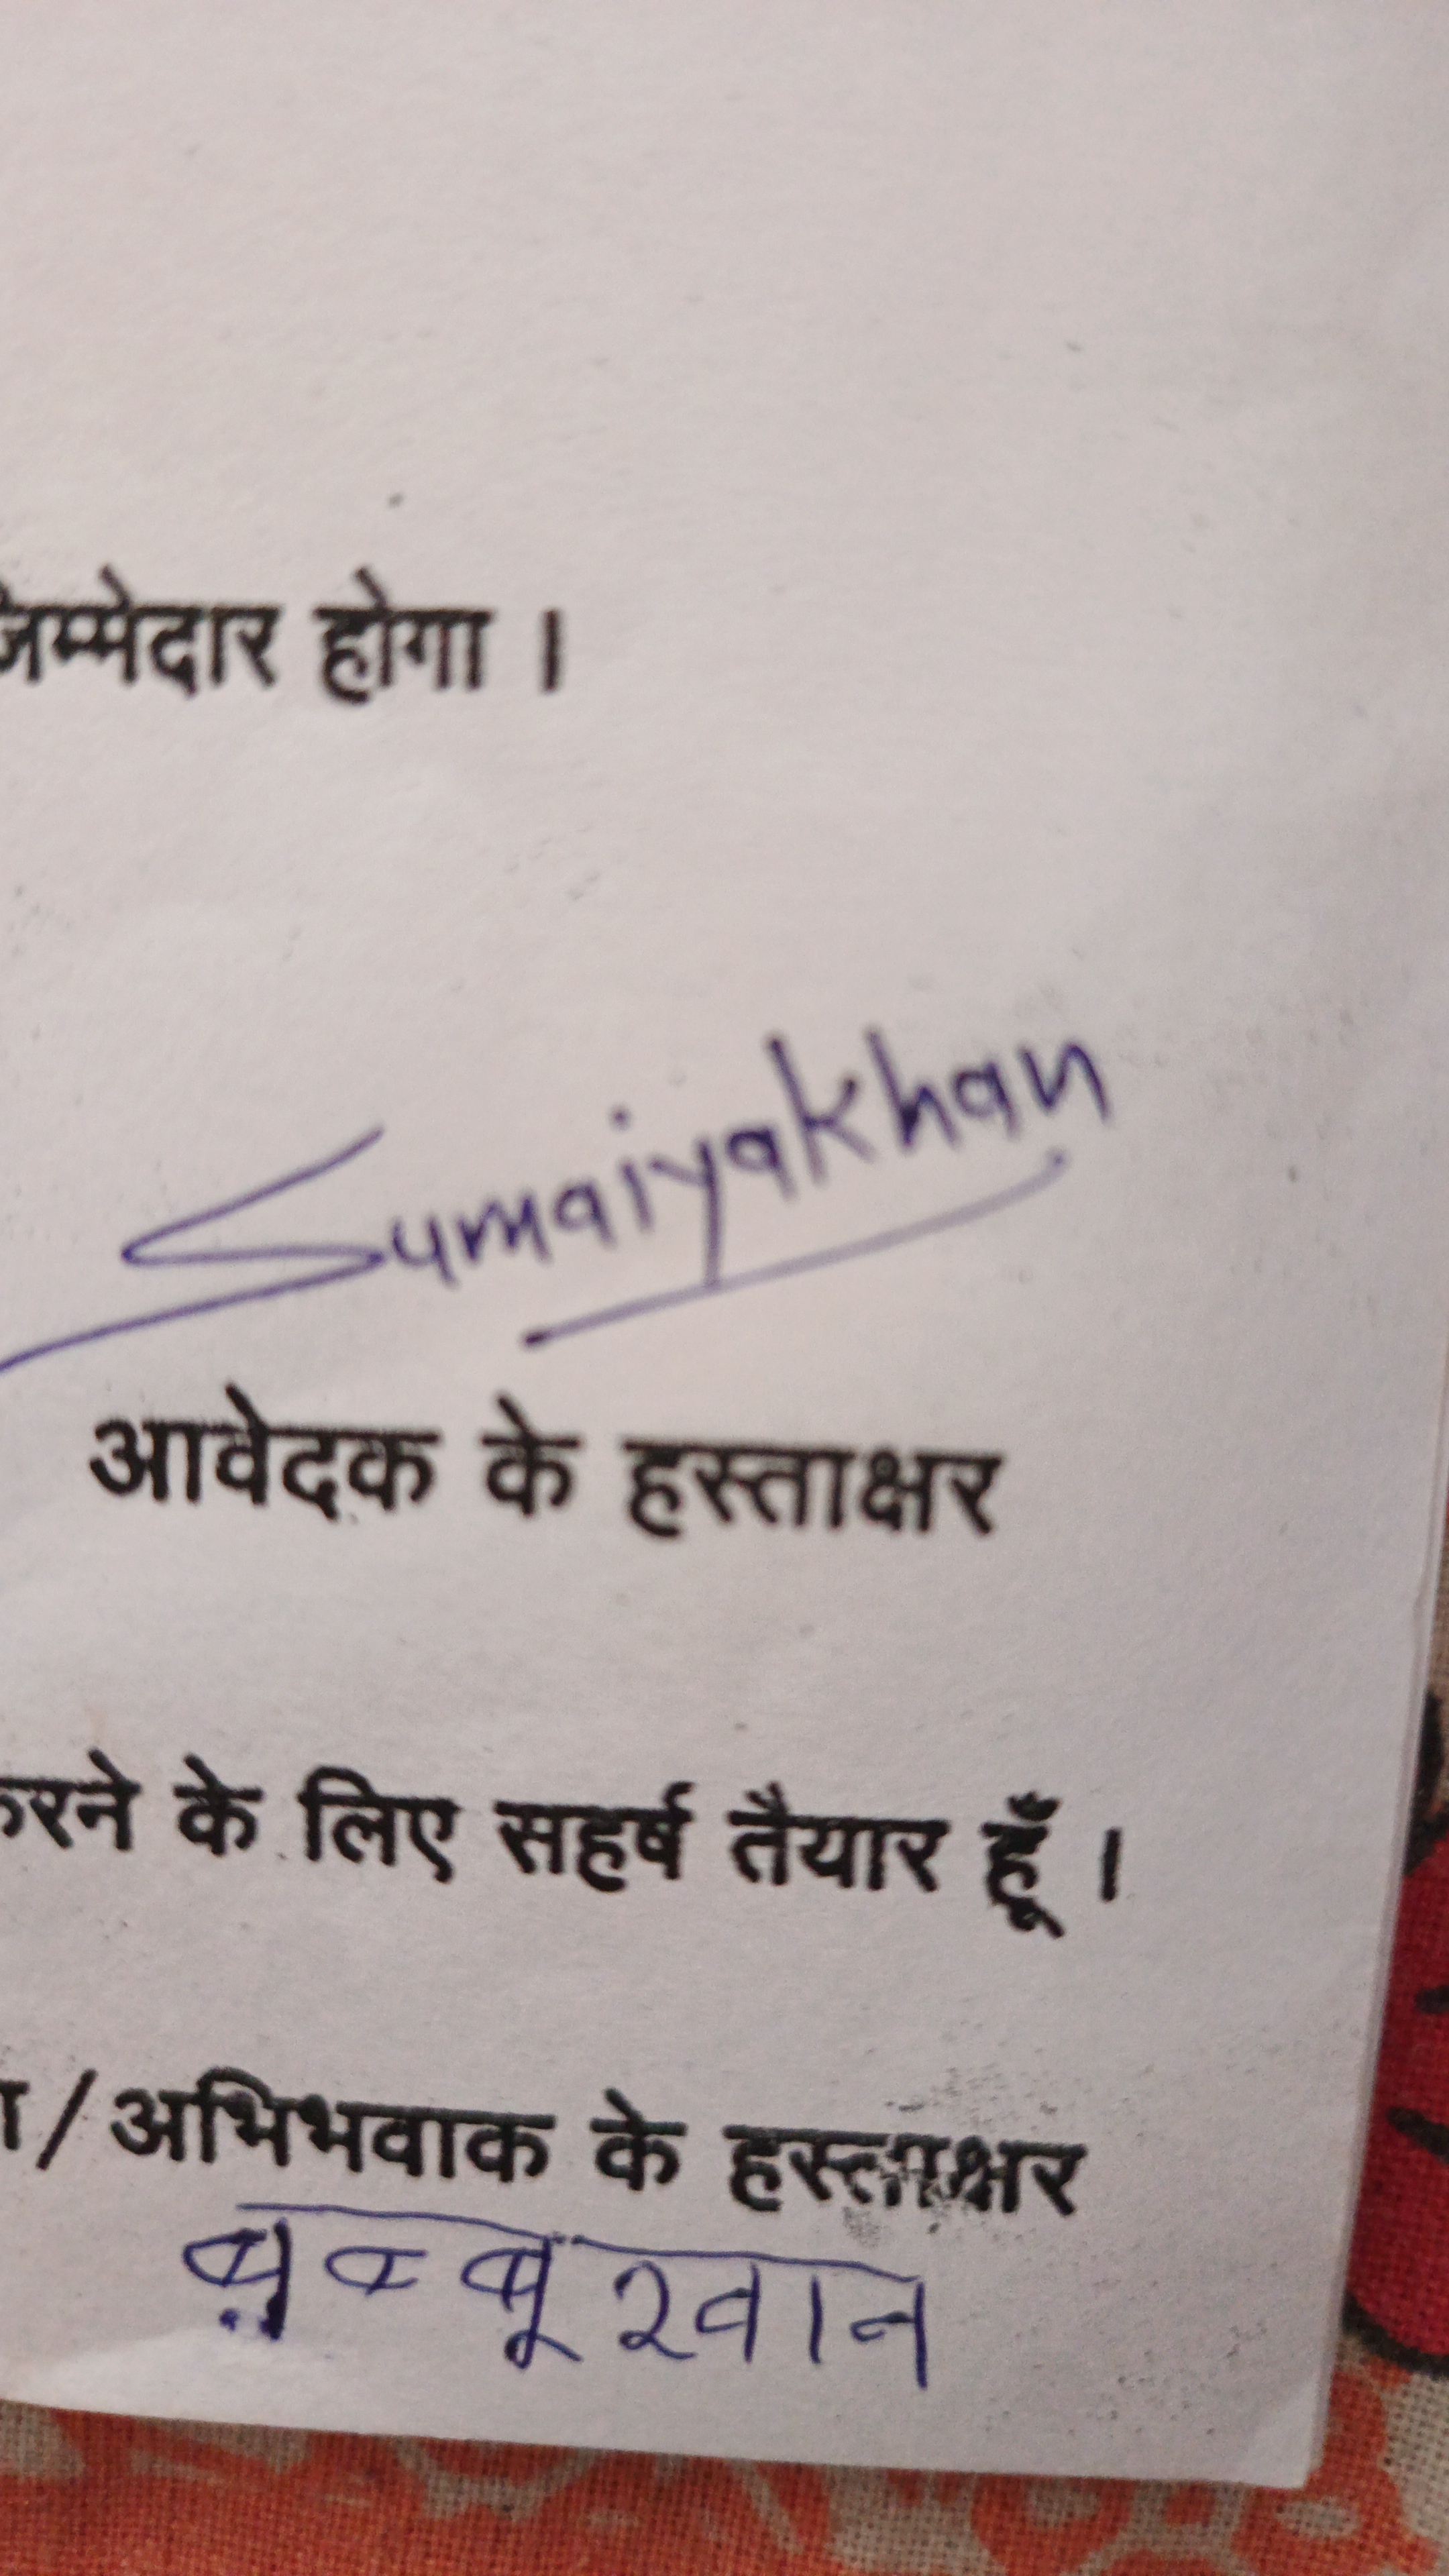 जिम्मेदार होगा ।
Sumaiyakhan
आवेदक के हस्ताक्षर
करने के लिए सहर्ष तैयार हूँ ।
/ अभिभवाक के हस्ताक्षर
खान